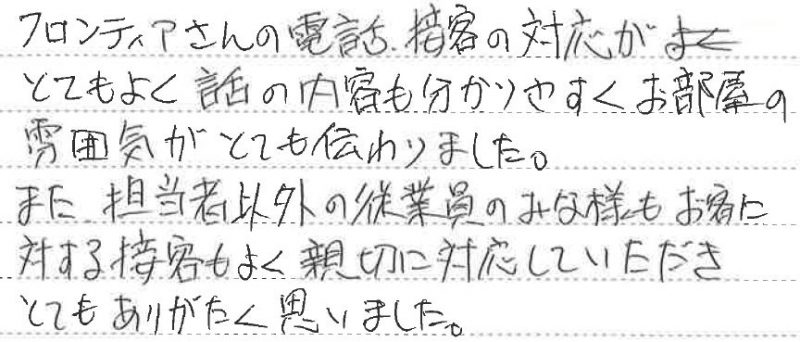 フロンティアさんの電話、接客の対応が
とてもよく話の内容も分かりやすくお部屋の
雰囲気がとても伝わりました。
また、担当者以外の従業員のみな様もお客に
対する接客もよく親切に対応していただき
とてもありがたく思いました。